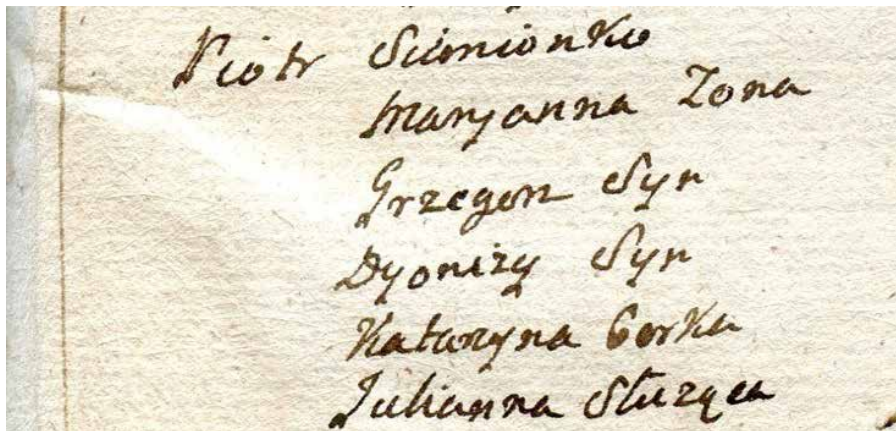 Piotr Siemionko
Maryanna Zona
Grzegorz Syn
Dyonizy Syn
Katarzyna Corka
Julianna Służąca